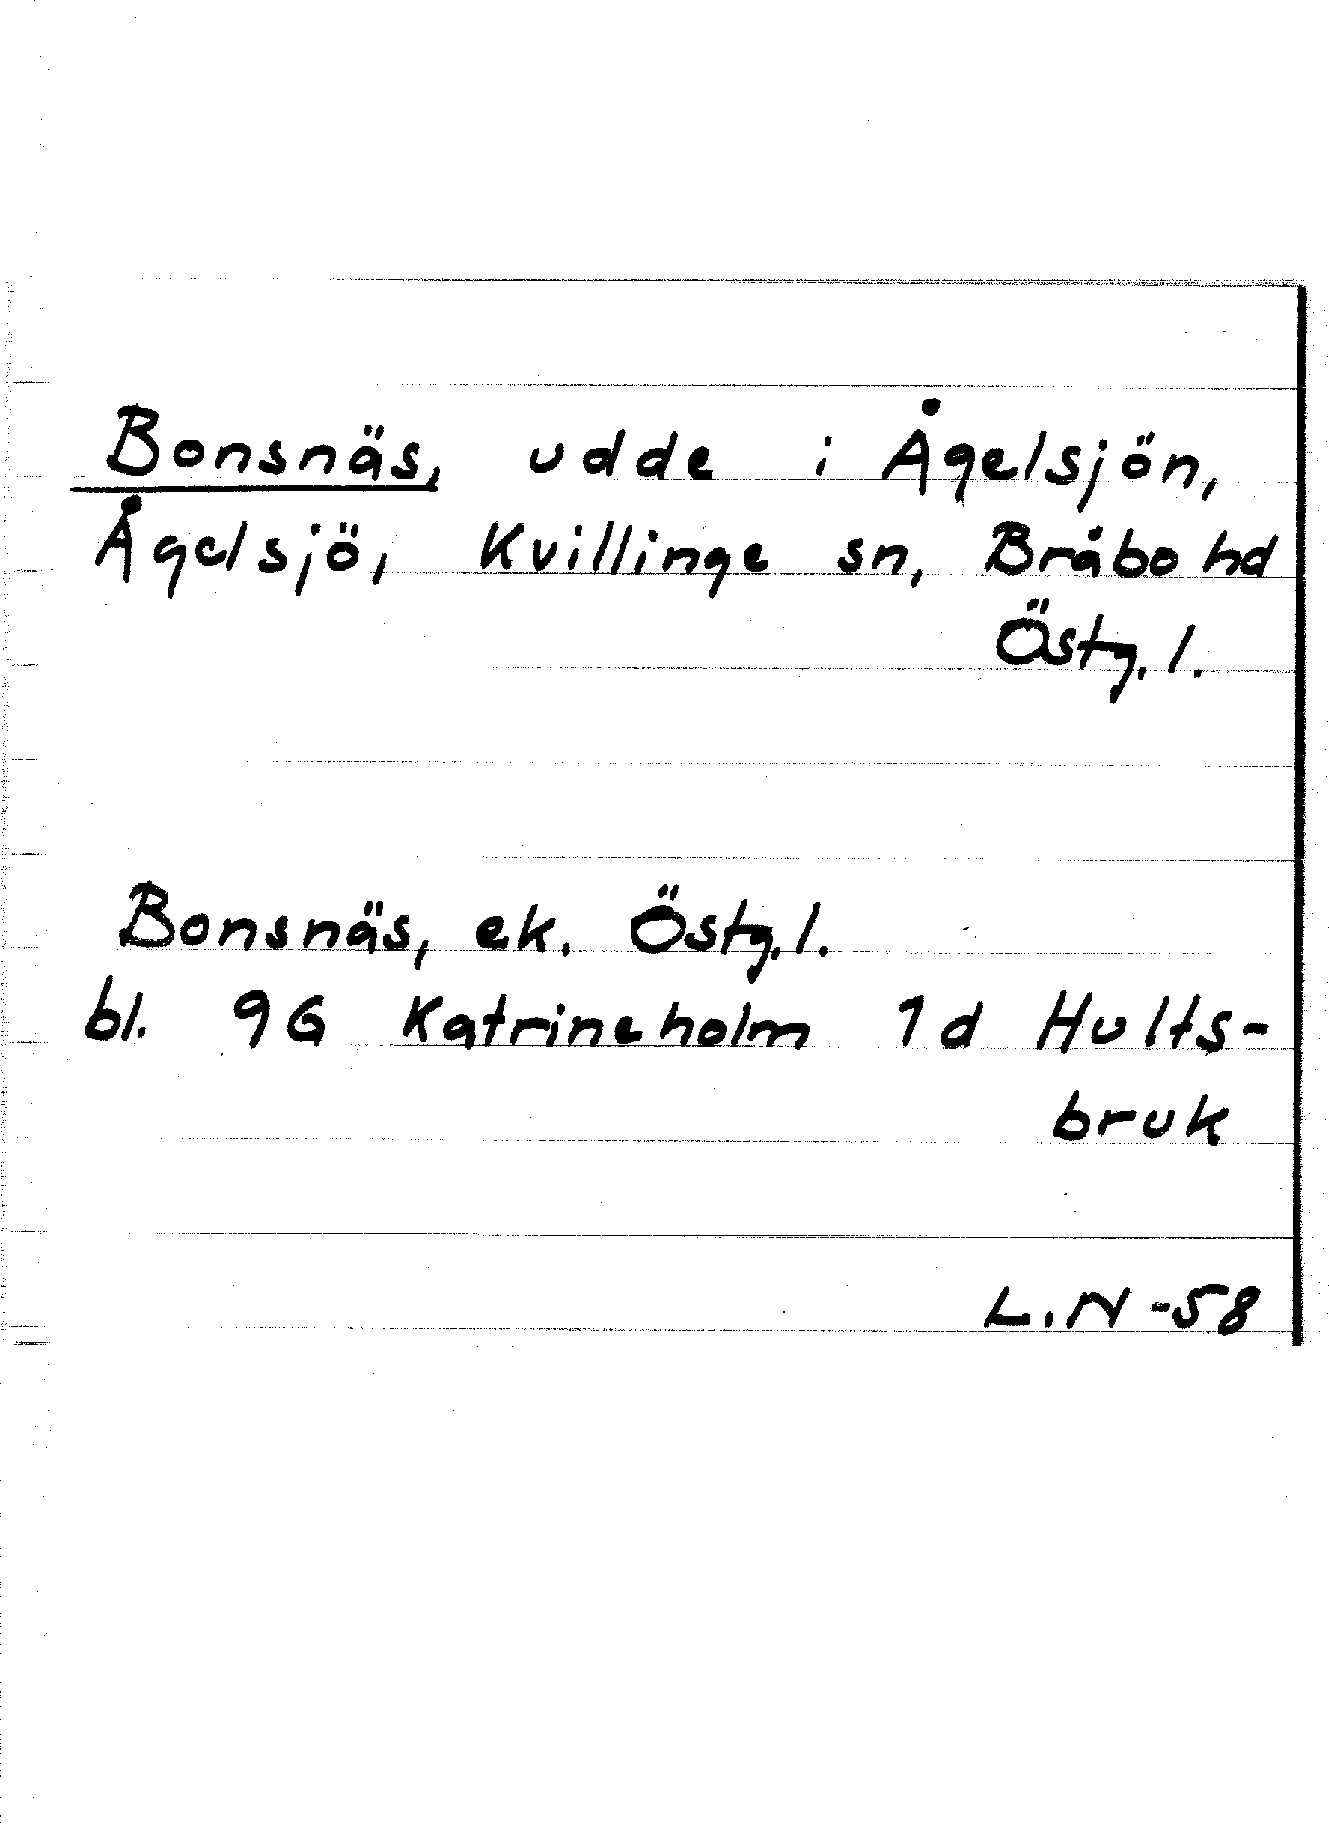 Bonsnäs, udde i Ågelsjön,
Ågelsjö, Kvillinge sn, Bråbo hd
Östg. l.
Bonsnäs, ek. Östg. l.
bl. 9G Katrineholm 1d Hults-
bruk
L.N -58